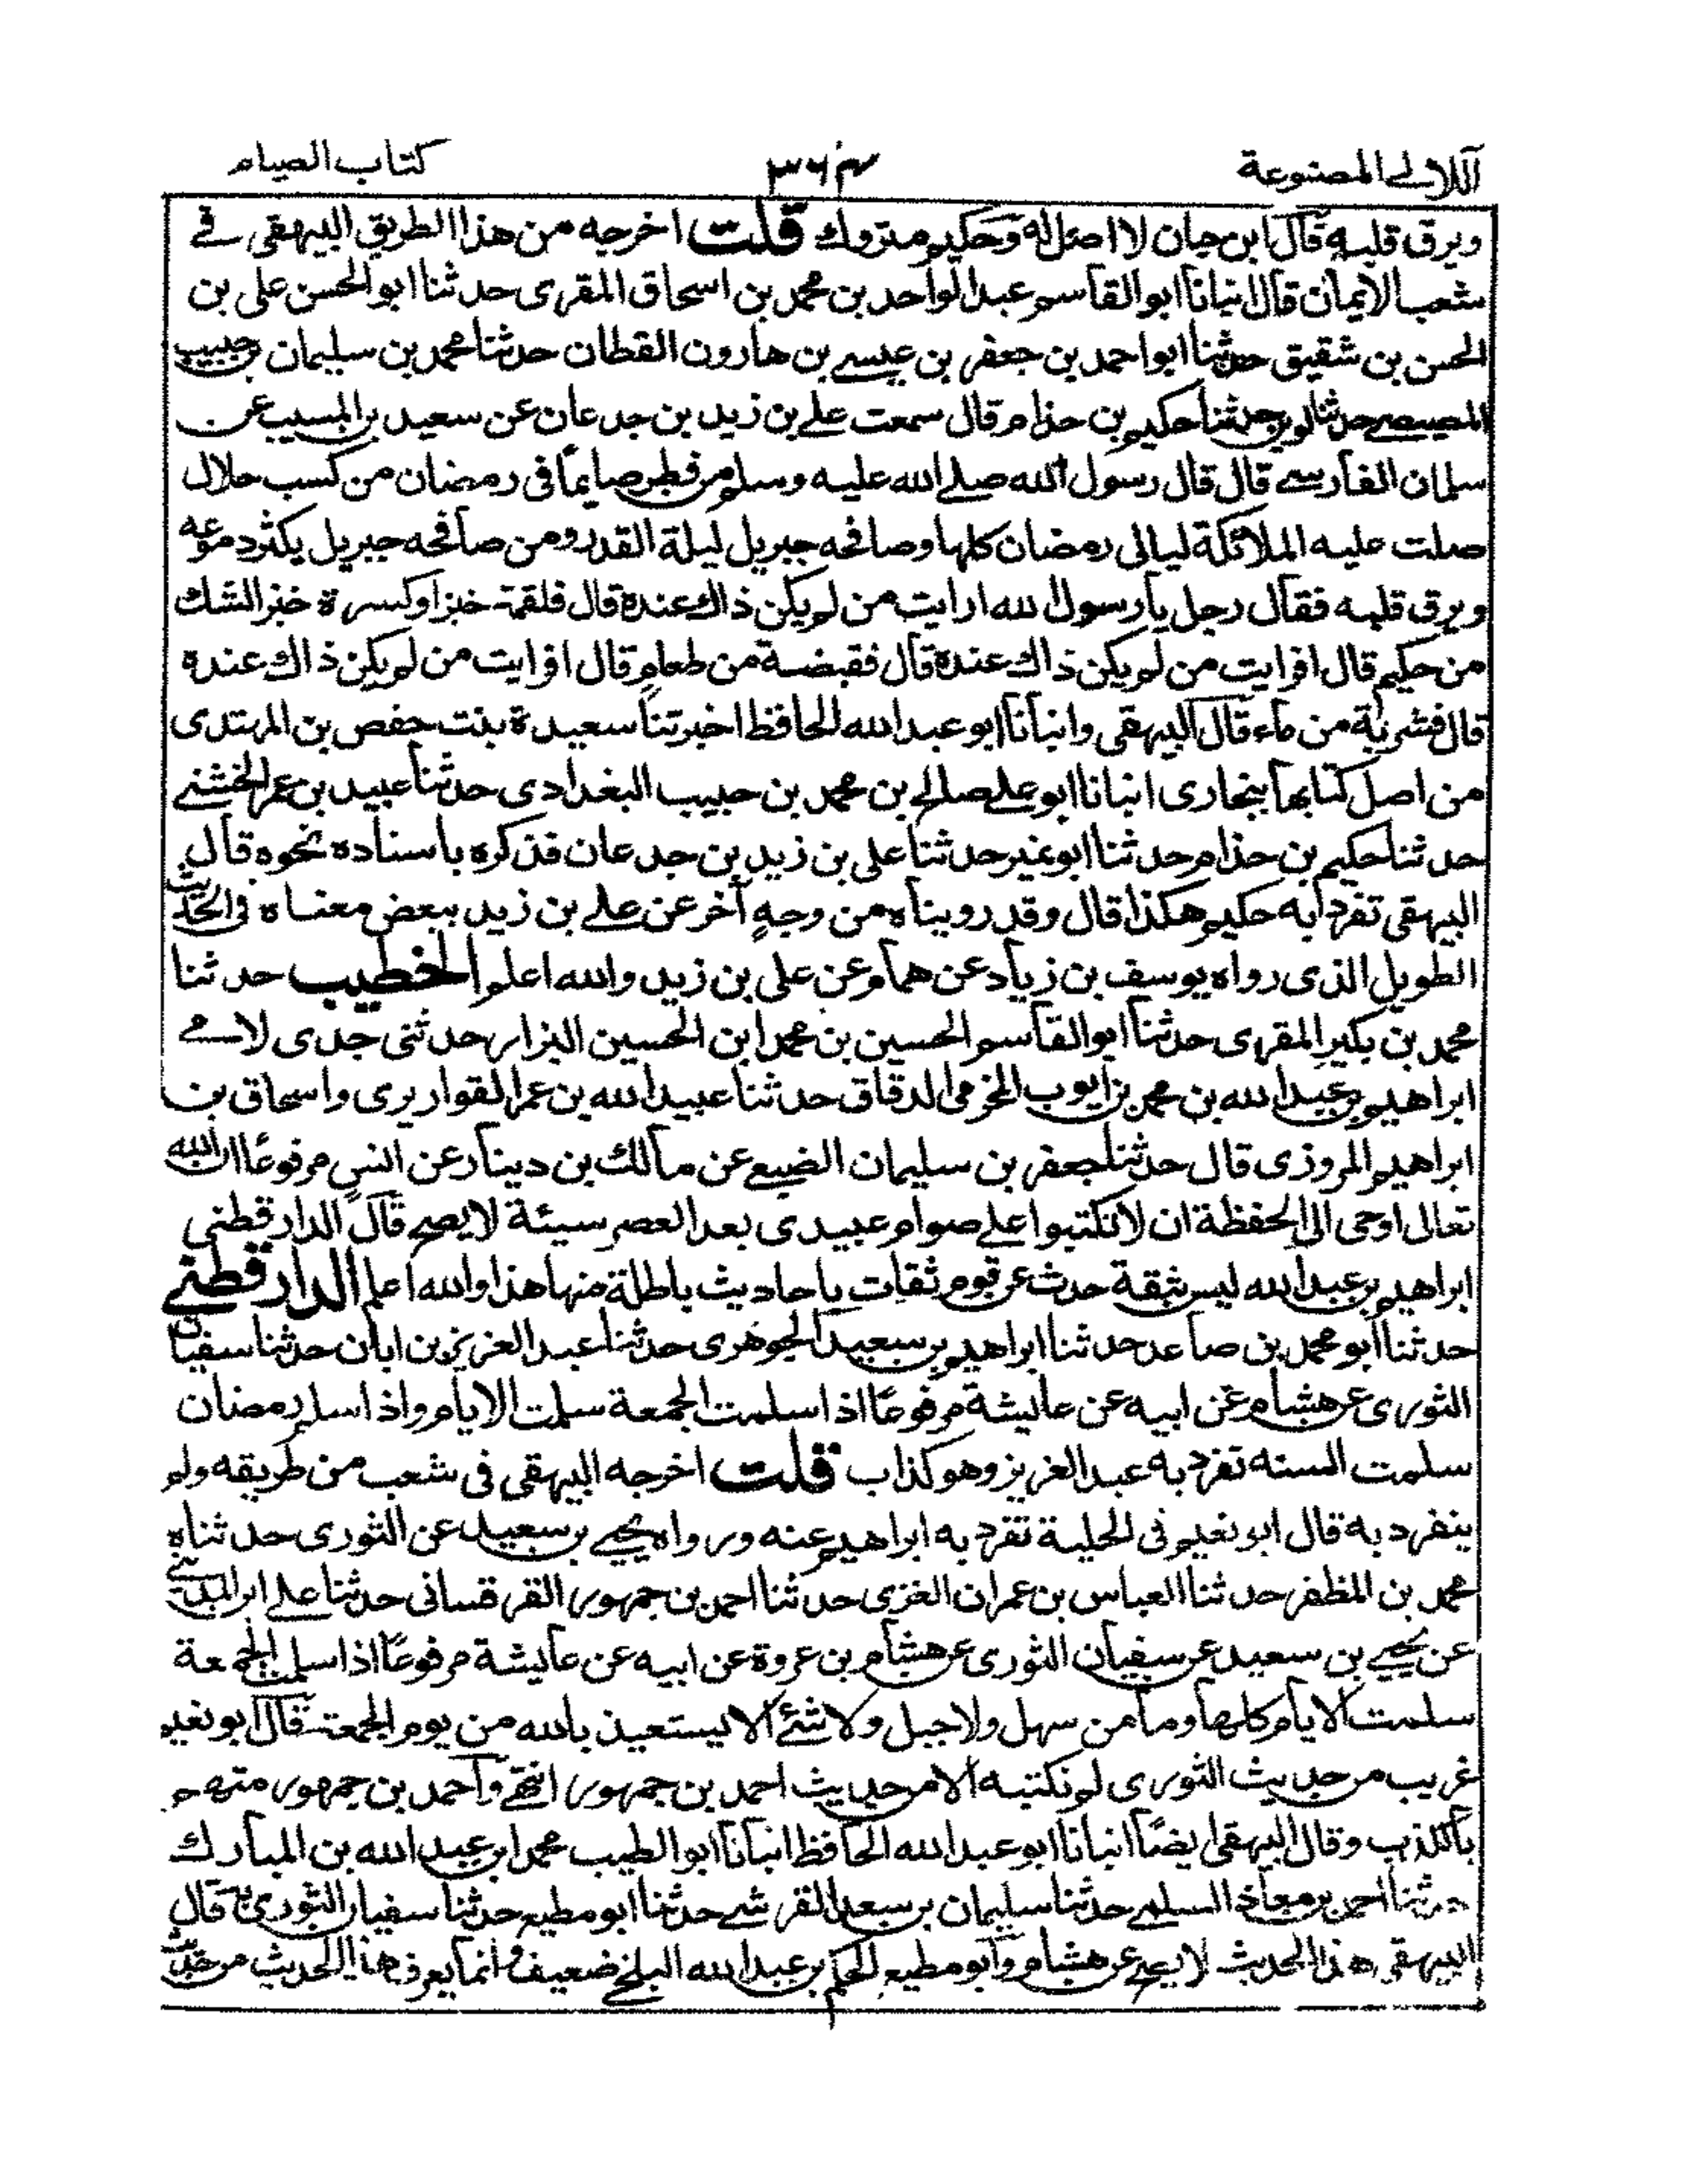 اللآلى المصنوعة
٣٦٤
كتاب الصيام
ويرق قلبه قال ابن حبان لا اصل له وحكيم متروك قلت اخرجه من هذا الطريق البيهقى فے
شعب الايمان قال انبانا ابو القاسم عبد الواحد بن محمد بن اسحاق المقرى حدثنا ابو الحسن على بن
الحسن بن شقيق حدثنا ابو احمد بن جعفر بن عيسے بن هارون القطان حدثنا محمد بن سليمان بن حبيب
المصيصے حدثنا لوين حدثنا حكيم بن حذام قال سمعت علے بن زيد بن جدعان عن سعيد بن المسيب عن
سلمان الفارسے قال قال رسول الله صلے الله عليه وسلم من فطر صايمًا فى رمضان من كسب حلال
صلت عليه الملائكة ليالى رمضان كلها وصافحه جبريل ليلة القدر ومن صافحه جبريل يكثر دموعه
ويرق قلبه فقال رجل يا رسول الله ارايت من لم يكن ذاك عنده قال فلقمة خبز او كسرة خبز الشك
من حكيم قال افرايت من لم يكن ذاك عنده قال فقبضة من طعام قال افرايت من لم يكن ذاك عنده
قال فشربة من ماء قال البيهقى وانبأنا ابو عبد الله الحافظ اخبرتنا سعيدة بنت حفص بن المهتدى
من اصل كتابها ببخارى انبانا ابو علے صالح بن محمد بن حبيب البغدادى حدثنا عبيد بن عمر الخشنے
حدثنا حكيم بن حذام حدثنا ابو عمير حدثنا على بن زيد بن جدعان فذكره باسناده نحوه قال
البيهقى تفرد به حكيم هكذا قال وقد رويناه من وجهٍ آخر عن علے بن زيد ببعض معناه فى الحديث
الطويل الذى رواه يوسف بن زياد عن همام عن على بن زيد والله اعلم الخطيب حدثنا
محمد بن بكير المقرى حدثنا ابو القاسم الحسين بن محمد ابن الحسين البزار حدثنى جدى لامے
ابراهيم بن عبد الله بن محمد بن ايوب المخرمى الدقاق حدثنا عبيد الله بن عمر القواريرى واسحاق بن
ابراهيم المروزى قال حدثنا جعفر بن سليمان الضبعے عن مالك بن دينار عن انس مرفوعًا ان الله
تعالى اوحى الى الحفظة ان لا تكتبوا علے صوام عبيدى بعد العصر سيئة لا يصح قال الدارقطنى
ابراهيم بن عبد الله ليس بثقة حدث عن قوم ثقات باحاديث باطلة منها هذا والله اعلم الدارقطنے
حدثنا ابو محمد بن صاعد حدثنا ابراهيم بن سعيد الجوهرى حدثنا عبد العزيز بن ابان حدثنا سفيان
الثورى عن هشام عن ابيه عن عايشة مرفوعًا اذا سلمت الجمعة سلمت الايام واذا سلم رمضان
سلمت السنه تفرد به عبد العزيز وهو كذاب قلت اخرجه البيهقى فى شعب من طريقه ولم
ينفرد به قال ابو نعيم فى الحلية تفرد به ابراهيم عنه ورواه يحيے بن سعيد عن الثورى حدثناه
محمد بن المظفر حدثنا العباس بن عمران الغزى حدثنا احمد بن جمهور القرقسانى حدثنا علے ابن المدينے
عن يحيے بن سعيد عن سفيان الثورى عن هشام بن عروة عن ابيه عن عايشة مرفوعًا اذا سلمت الجمعة
سلمت الايام كلها وما من سهل ولا جبل ولا شئ الا يستعيذ بالله من يوم الجمعة قال ابو نعيم
غريب من حديث الثورى لم نكتبه الا من حديث احمد بن جمهور انتهے واحمد بن جمهور متهم
بالكذب وقال البيهقى ايضًا انبانا ابو عبد الله الحافظ انبانا ابو الطيب محمد ابن عبد الله بن المبارك
حدثنا احمد بن معاذ السلمے حدثنا سليمان بن سعد القرشے حدثنا ابو مطيع حدثنا سفيان الثورى به قال
البيهقى هذا الحديث لا يصح عن هشام وابو مطيع الحكم بن عبد الله البلخے ضعيف وانما يعرف هذا الحديث من حديث